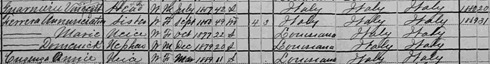 Guarnieri Vincent Head W M July 1857 42 S Italy Italy Italy 1880 20
Herrera Annunciatta Sister W F Sept 1850 49 M 4 3 Italy Italy Italy 1869 31
— Marie Neice W F Oct 1877 22 S Louisiana Italy Italy
— Domenick Nephew W M Dec 1879 20 S Louisiana Italy Italy
Annie W F Mar 1889 11 S Louisiana Italy Italy